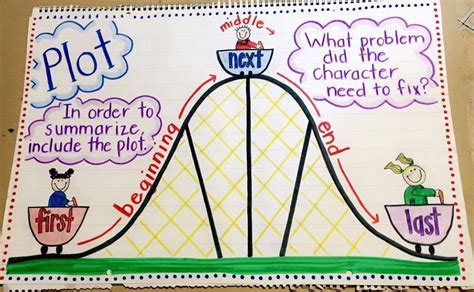 Plot
middle
next
What problem
did the
character
need to fix?
In order to
summarize,
include the plot.
beginning
end
first
last